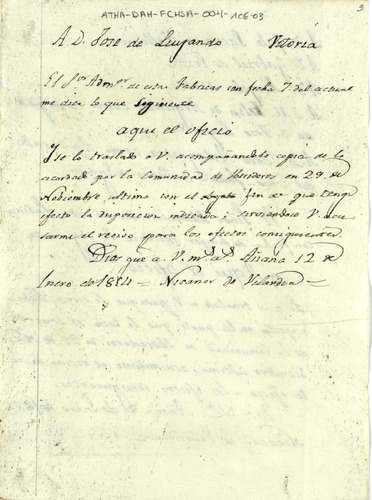 ATHA-DAH-FCHSA-004-106-03
3
A D. Jose de Luyando Vitoria
El Sor Admor de estas Fabricas con fecha 7 del actual
me dice lo que sigue
aqui el oficio
Y se lo traslado a V. acompañandole copia de lo
acordado por la Comunidad de herederos en 29 de
Nobiembre ultimo con el fin de que tenga
efecto la disposicion indicada; sirviendose V. acu
sarme el recivo para los efectos consiguientes.
Dios gue a V. ms as. Añana 12 de
Enero de 1854 = Nicanor de Velandia =